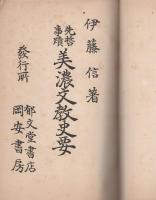 伊藤信著
先哲事蹟
美濃文教史要
發行所
郁文堂書店
岡安書房